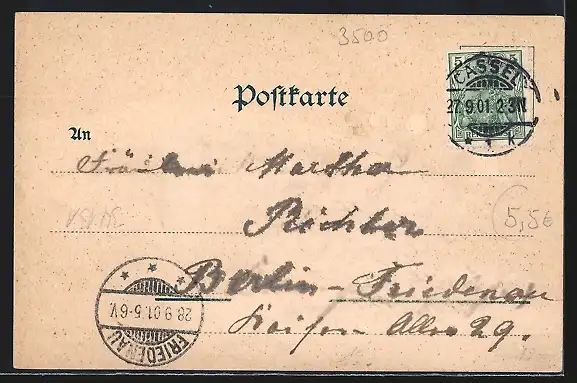 3500
5
CASSEL
27.9.01.2-3N
* 1 *
Postkarte
An
Fräulein Martha
Richter
5,5€
Berlin-Friedenau
Kaiser Allee 29.
28.9.01.5-6V.
FRIEDENAU